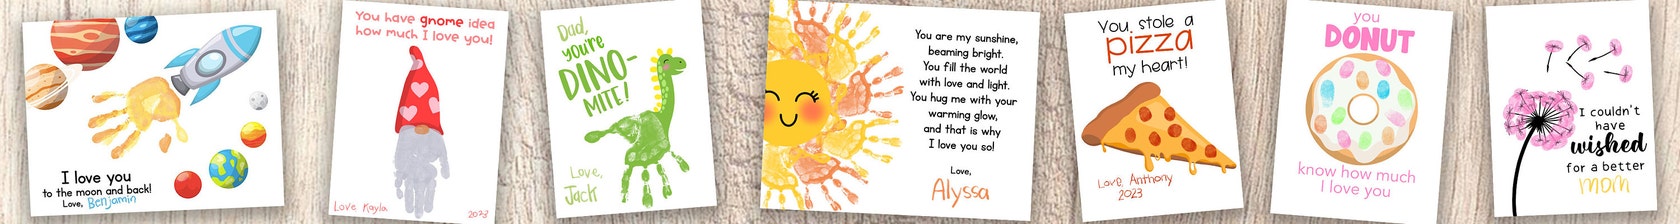 I love you
to the moon and back!
Love, Benjamin
You have gnome idea
how much I love you!
Love, Kayla
2023
Dad,
you're
DINO-
MITE!
Love,
Jack
You are my sunshine,
beaming bright.
You fill the world
with love and light.
You hug me with your
warming glow,
and that is why
I love you so!
Love,
Alyssa
You stole a
pizza
my heart!
Love, Anthony
2023
you
DONUT
know how much
I love you
I couldn't
have
wished
for a better
mom